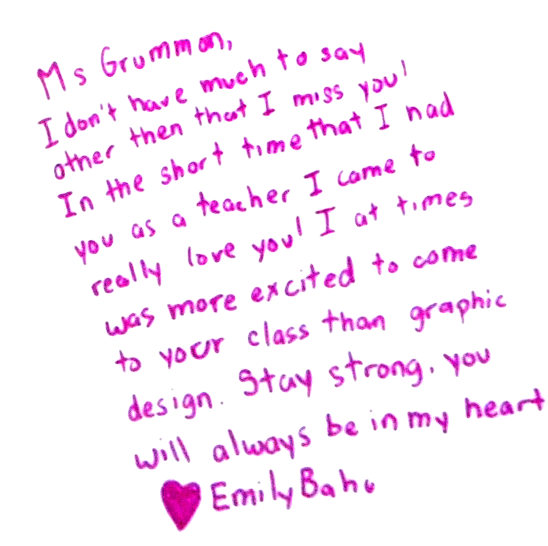 Ms Grummon,
I don't have much to say
other then that I miss you!
In the short time that I had
you as a teacher I came to
really love you! I at times
was more excited to come
to your class than graphic
design. Stay strong, you
will always be in my heart
Emily Bahu